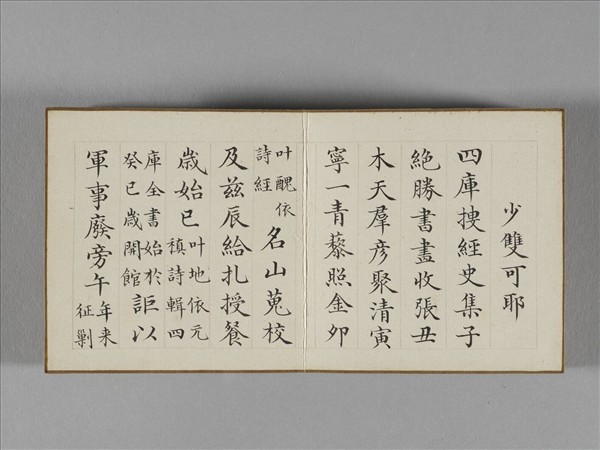 少雙可耶
四庫搜經史集子
絶勝書畫收張丑
木天羣彥聚清寅
寧一青藜照金卯
叶醜依
詩經
名山蒐校
及兹辰給扎授餐
歳始巳
叶地依元
稹詩輯四
庫全書始於
癸巳歳開館
詎以
軍事廢旁午
年来
征剿